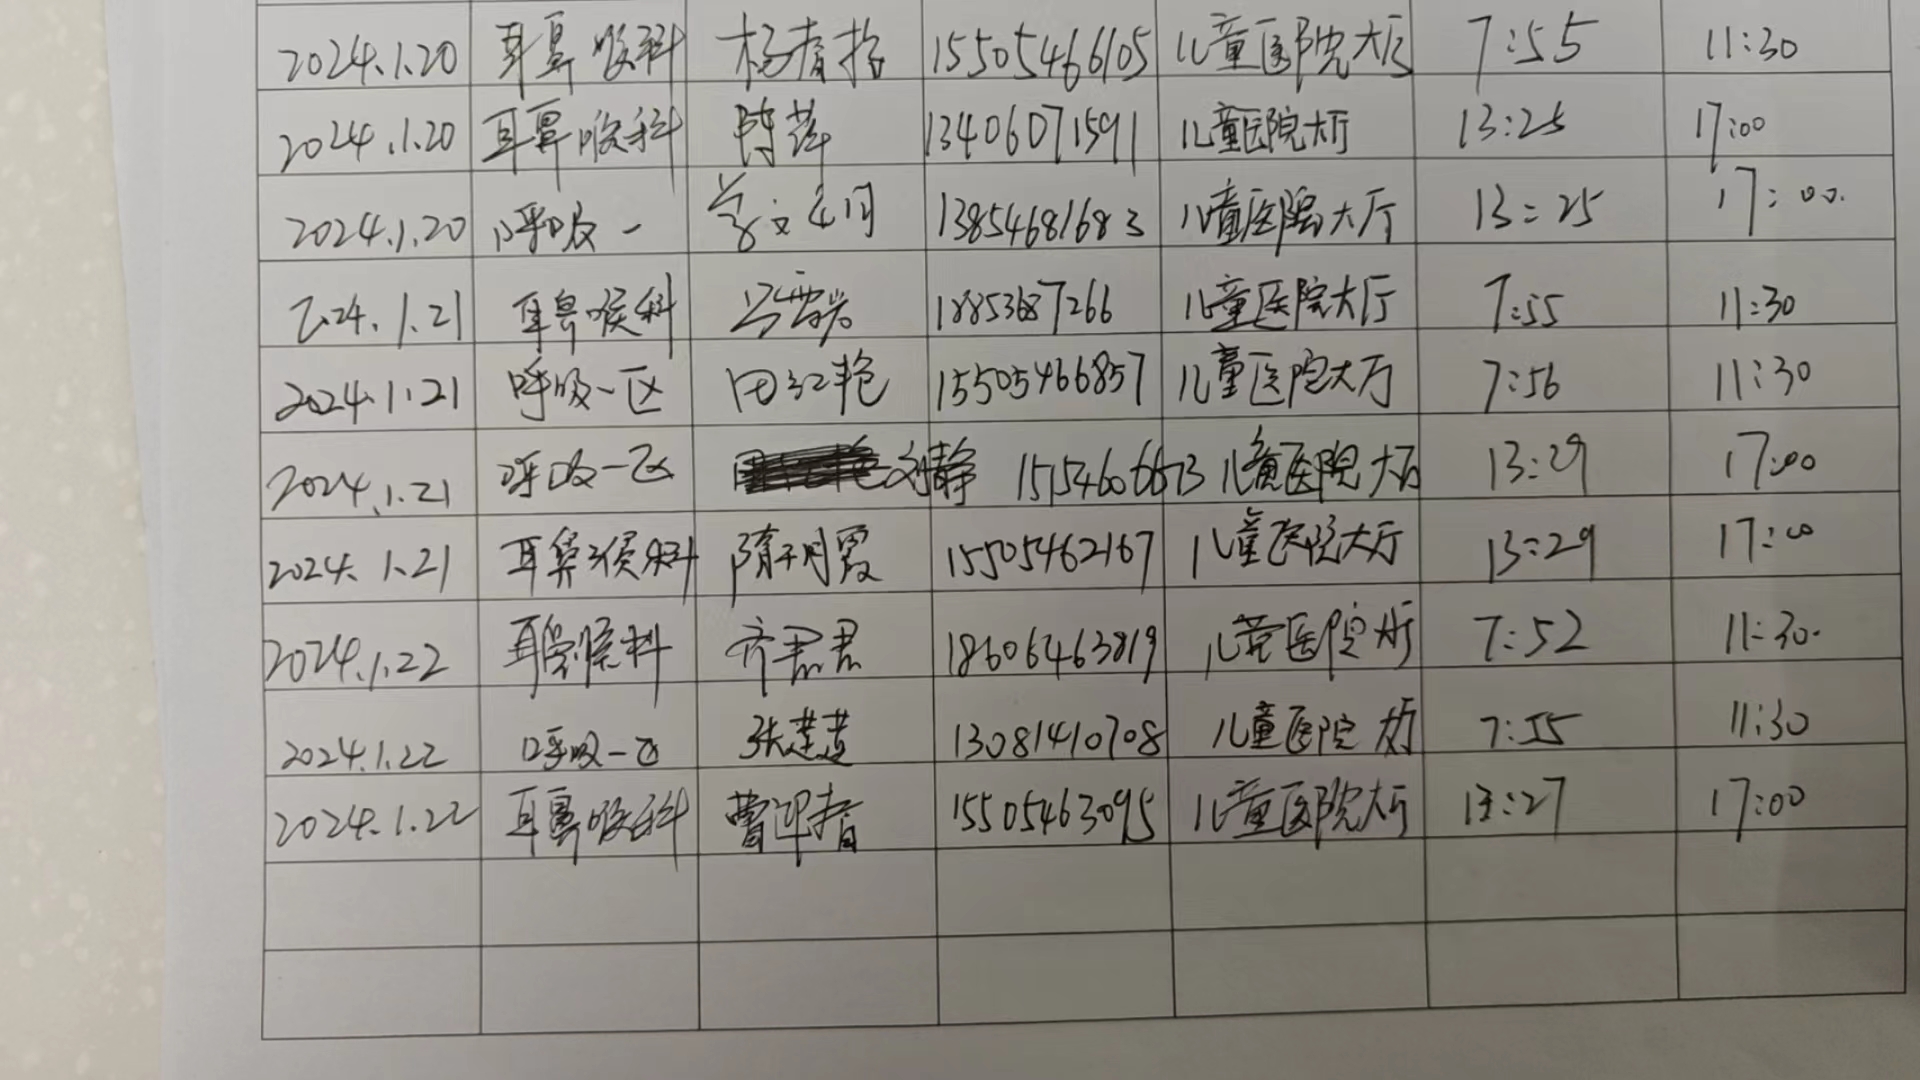 2024.1.20 耳鼻喉科 杨 15505466105 儿童医院大厅 7:55 11:30
2024.1.20 耳鼻喉科 陈萍 13406071591 儿童医院大厅 13:25 17:00
2024.1.20 呼吸一 13854681683 儿童医院大厅 13:25 17:00.
2024.1.21 耳鼻喉科 18853687266 儿童医院大厅 7:55 11:30
2024.1.21 呼吸一区 田红艳 15505466857 儿童医院大厅 7:56 11:30
2024.1.21 呼吸一区 刘静 儿童医院大厅 13:29 17:00
2024.1.21 耳鼻喉科 隋明霞 15505462167 儿童医院大厅 13:29 17:00
2024.1.22 耳鼻喉科 齐君君 18606463819 儿童医院大厅 7:52 11:30.
2024.1.22 呼吸一区 张莲莲 13081410708 儿童医院大厅 7:55 11:30
2024.1.22 耳鼻喉科 曹迎 15505463095 儿童医院大厅 13:27 17:00